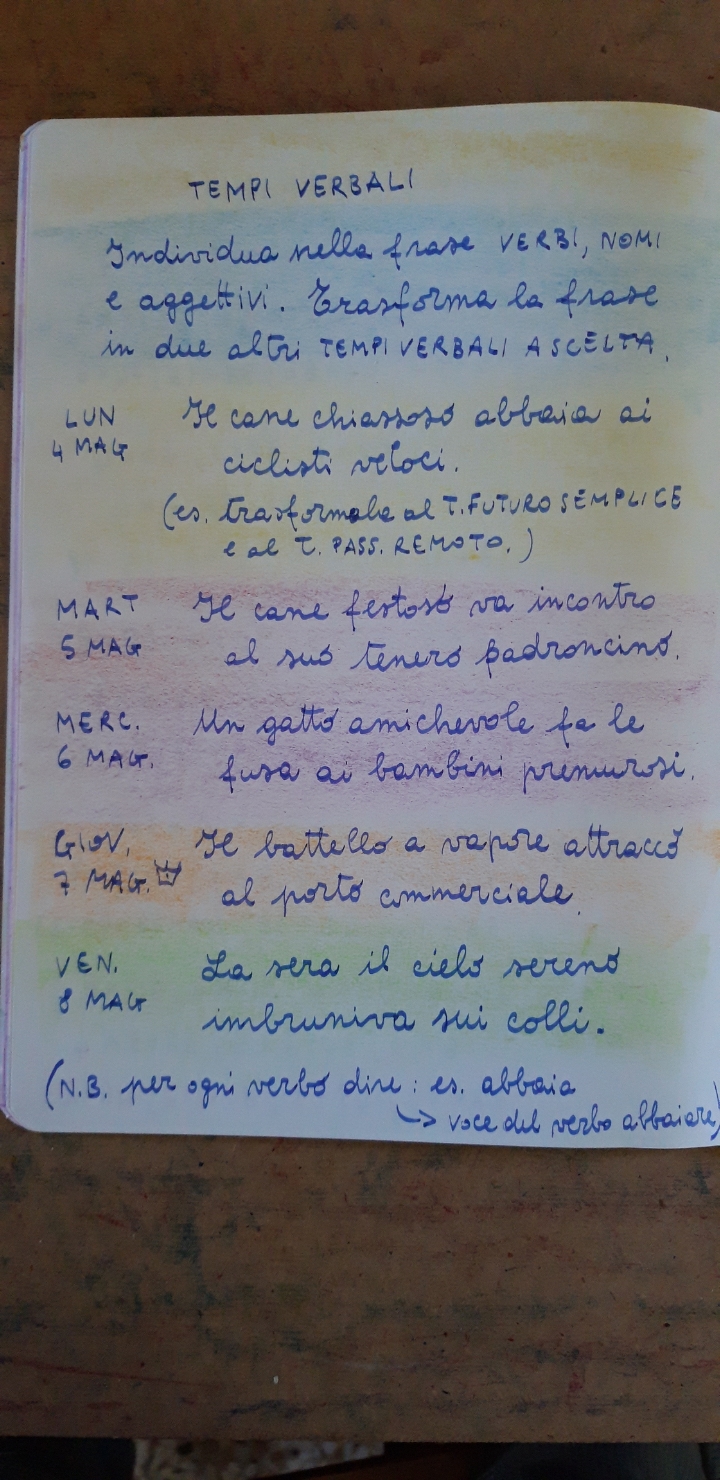 TEMPI VERBALI
Individua nella frase VERBI, NOMI
e aggettivi. Trasforma la frase
in due altri TEMPI VERBALI A SCELTA.
LUN Il cane chiassoso abbaia ai
4 MAG ciclisti veloci.
(es. trasformala al T. FUTURO SEMPLICE
e al T. PASS. REMOTO.)
MART Il cane festoso va incontro
5 MAG al suo tenero padroncino.
MERC. Un gatto amichevole fa le
6 MAG. fusa ai bambini premurosi.
GIOV. Il battello a vapore attraccò
7 MAG. al porto commerciale.
VEN. La sera il cielo sereno
8 MAG imbruniva sui colli.
(N.B. per ogni verbo dire: es. abbaia
↳ voce del verbo abbaiare)